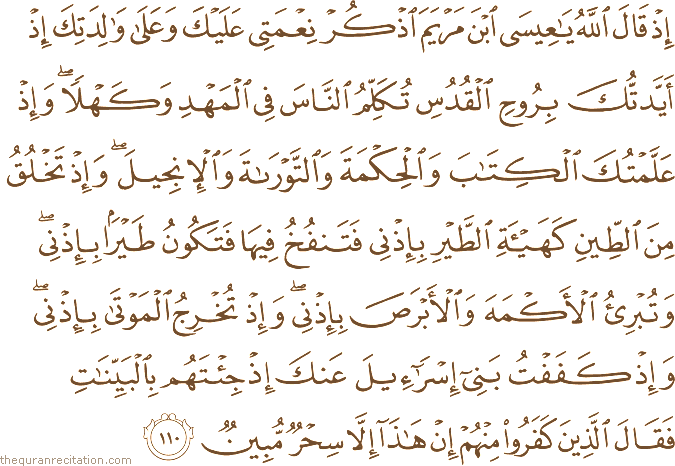 إِذْ قَالَ ٱللَّهُ يَـٰعِيسَى ٱبْنَ مَرْيَمَ ٱذْكُرْ نِعْمَتِى عَلَيْكَ وَعَلَىٰ وَٰلِدَتِكَ إِذْ
أَيَّدتُّكَ بِرُوحِ ٱلْقُدُسِ تُكَلِّمُ ٱلنَّاسَ فِى ٱلْمَهْدِ وَكَهْلًا ۖ وَإِذْ
عَلَّمْتُكَ ٱلْكِتَـٰبَ وَٱلْحِكْمَةَ وَٱلتَّوْرَىٰةَ وَٱلْإِنجِيلَ ۖ وَإِذْ تَخْلُقُ
مِنَ ٱلطِّينِ كَهَيْـَٔةِ ٱلطَّيْرِ بِإِذْنِى فَتَنفُخُ فِيهَا فَتَكُونُ طَيْرًۢا بِإِذْنِى ۖ
وَتُبْرِئُ ٱلْأَكْمَهَ وَٱلْأَبْرَصَ بِإِذْنِى ۖ وَإِذْ تُخْرِجُ ٱلْمَوْتَىٰ بِإِذْنِى ۖ
وَإِذْ كَفَفْتُ بَنِىٓ إِسْرَٰٓءِيلَ عَنكَ إِذْ جِئْتَهُم بِٱلْبَيِّنَـٰتِ
فَقَالَ ٱلَّذِينَ كَفَرُوا۟ مِنْهُمْ إِنْ هَـٰذَآ إِلَّا سِحْرٌ مُّبِينٌ ١١٠
thequranrecitation.com